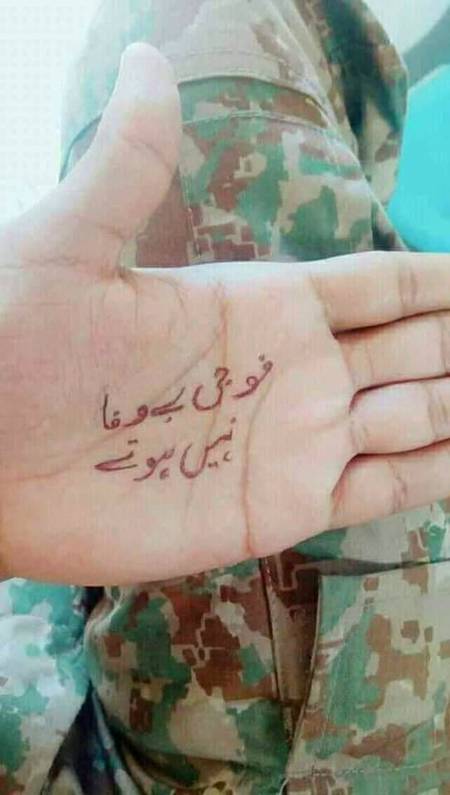 فوجی بے وفا
نہیں ہوتے